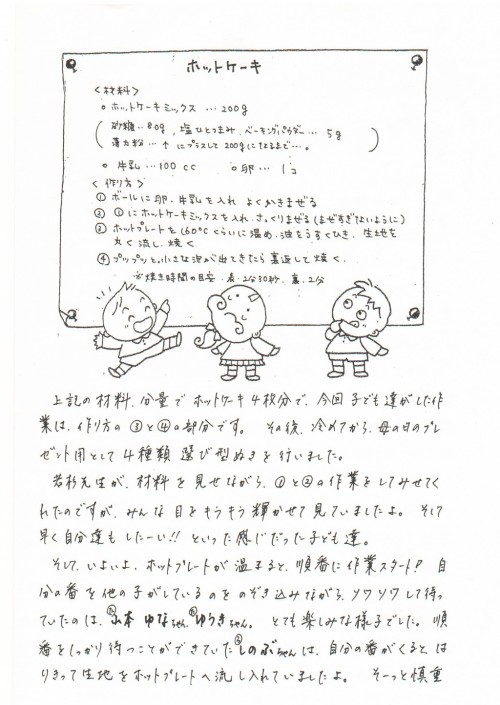 ホットケーキ
<材料>
○ ホットケーキミックス … 200g
( 砂糖…80g、塩ひとつまみ、ベーキングパウダー… 5g
薄力粉…↑にプラスして200gになるまで…。 )
○ 牛乳…100cc ○ 卵… 1コ
<作り方>
① ボールに卵、牛乳を入れ よくかきまぜる
② ①にホットケーキミックスを入れ、さっくりまぜる(まぜすぎないように)
③ ホットプレートを160℃くらいに温め、油をうすくひき、生地を
丸く流し、焼く
④ プップッと小さな泡が出てきたら裏返して焼く、
※焼き時間の目安・表・2分30秒、裏・2分
上記の材料、分量でホットケーキ4枚分で、今回子ども達がした作
業は、作り方の③と④の部分です。 その後、冷めてから、母の日のプレ
ゼント用として4種類選び型ぬきを行いました。
若杉先生が、材料を見せながら、①と②の作業をしてみせてく
れたのですが、みんな目をキラキラ輝かせて見ていましたよ。 そして
早く自分達もしたーい!! といった感じだった子ども達。
そして、いよいよ、ホットプレートが温まると、順番に作業スタート! 自
分の番を他の子がしているのをのぞき込みながら、ソワソワして待っ
ていたのは、山本ゆなちゃん、ゆうきちゃん。 とても楽しみな様子でした。 順
番をしっかり待つことができていたしのぶちゃんは、自分の番がくると は
りきって生地をホットプレートへ流し入れていましたよ。 そーっと慎重